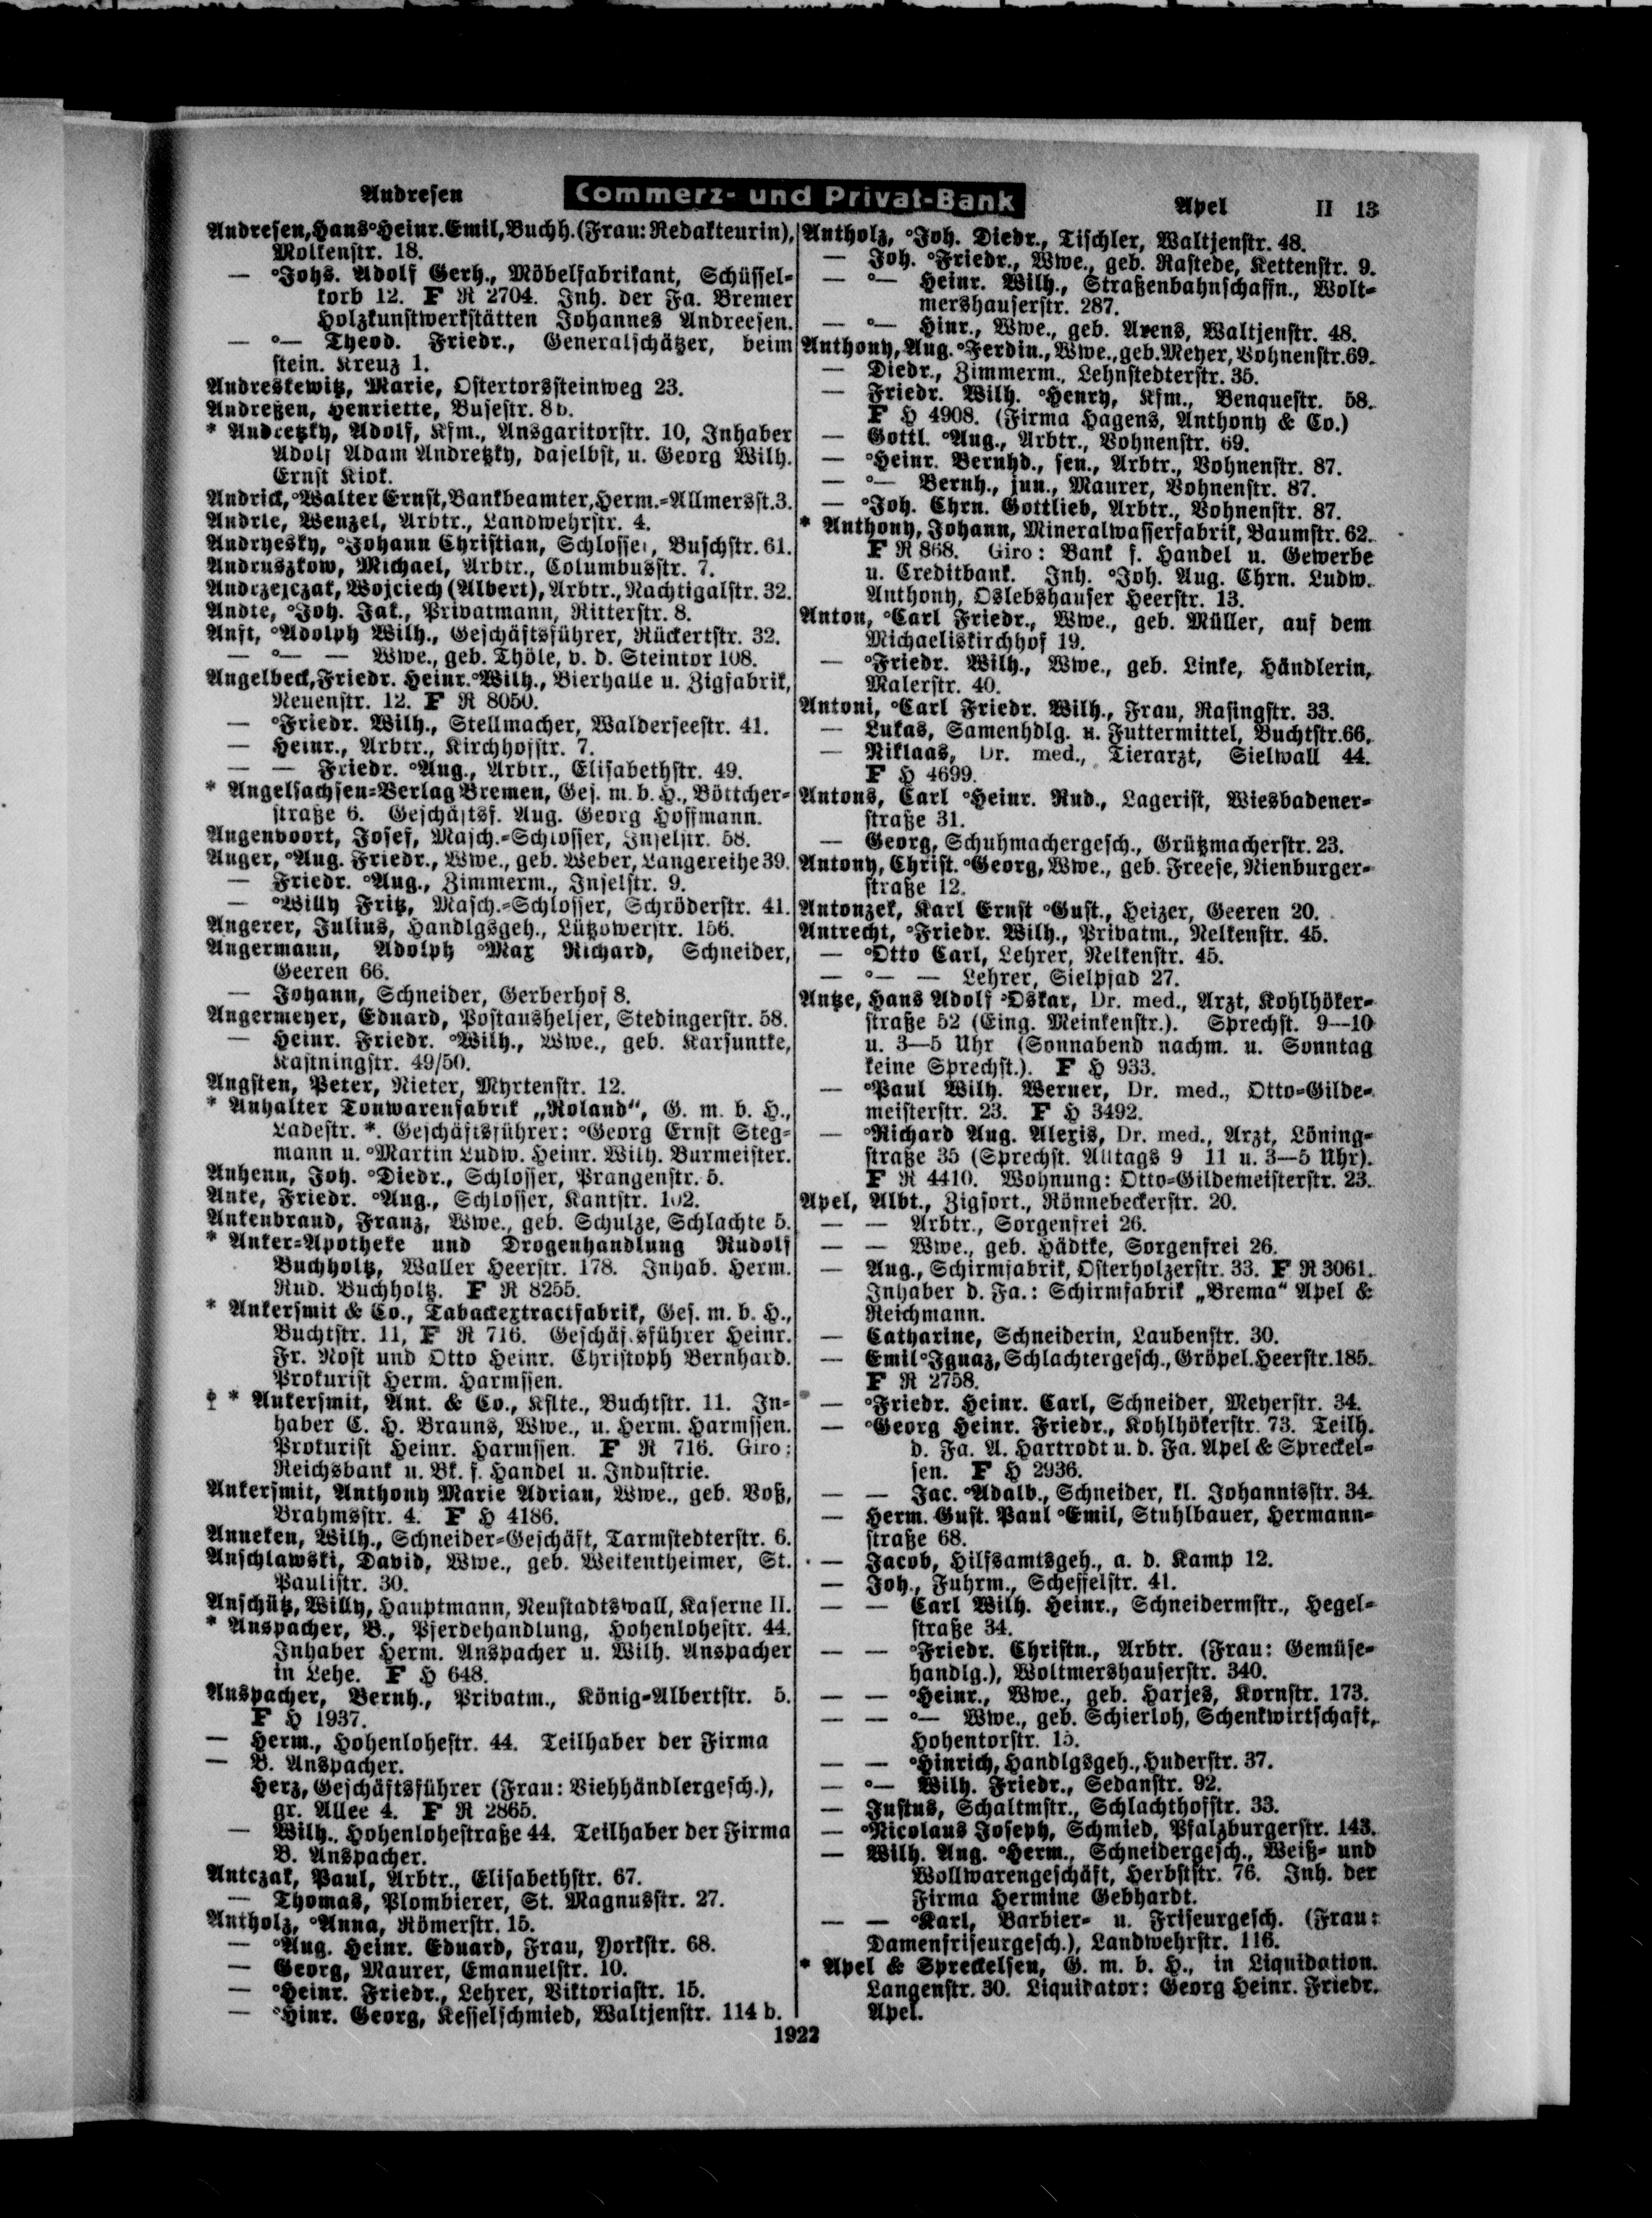 Andresen
Commerz- und Privat-Bank
Apel
II 13
Andresen, Hans °Heinr. Emil, Buchh. (Frau: Redakteurin),
Moltenstr. 18.
— °Johs. Adolf Gerh., Möbelfabrikant, Schüssel-
korb 12. F R 2704. Inh. der Fa. Bremer
Holzkunstwerkstätten Johannes Andreesen.
— °— Theod. Friedr., Generalschätzer, beim
stein. Kreuz 1.
Andreskewitz, Marie, Ostertorssteinweg 23.
Andreßen, Henriette, Busestr. 8b.
* Andretzky, Adolf, Kfm., Ansgaritorstr. 10, Inhaber
Adolf Adam Andretzky, daselbst, u. Georg Wilh.
Ernst Kiok.
Andrick, °Walter Ernst, Bankbeamter, Herm.-Allmersst. 3.
Andrle, Wenzel, Arbtr., Landwehrstr. 4.
Andryesky, °Johann Christian, Schlosser, Buschstr. 61.
Andruszkow, Michael, Arbtr., Columbusstr. 7.
Andrzejczak, Wojciech (Albert), Arbtr., Nachtigalstr. 32.
Andte, °Joh. Jak., Privatmann, Ritterstr. 8.
Anft, °Adolph Wilh., Geschäftsführer, Rückertstr. 32.
— °— — Wwe., geb. Thöle, v. d. Steintor 108.
Angelbeck, Friedr. Heinr. °Wilh., Bierhalle u. Zigfabrik,
Neuenstr. 12. F R 8050.
— °Friedr. Wilh., Stellmacher, Walderseestr. 41.
— Heinr., Arbtr., Kirchhofstr. 7.
— — Friedr. °Aug., Arbtr., Elisabethstr. 49.
* Angelsachsen-Verlag Bremen, Ges. m. b. H., Böttcher-
straße 6. Geschäftsf. Aug. Georg Hoffmann.
Angenvoort, Josef, Masch.-Schlosser, Inselstr. 58.
Anger, °Aug. Friedr., Wwe., geb. Weber, Langereihe 39.
— Friedr. °Aug., Zimmerm., Inselstr. 9.
— °Willy Fritz, Masch.-Schlosser, Schröderstr. 41.
Angerer, Julius, Handlgsgeh., Lützowerstr. 156.
Angermann, Adolph °Max Richard, Schneider,
Geeren 66.
— Johann, Schneider, Gerberhof 8.
Angermeyer, Eduard, Postaushelfer, Stedingerstr. 58.
— Heinr. Friedr. °Wilh., Wwe., geb. Karsuntke,
Kastningstr. 49/50.
Angsten, Peter, Nieter, Myrtenstr. 12.
* Anhalter Tonwarenfabrik „Roland“, G. m. b. H.,
Ladestr. *. Geschäftsführer: °Georg Ernst Steg-
mann u. °Martin Ludw. Heinr. Wilh. Burmeister.
Anhenn, Joh. °Diedr., Schlosser, Prangenstr. 5.
Anke, Friedr. °Aug., Schlosser, Kantstr. 102.
Ankenbrand, Franz, Wwe., geb. Schulze, Schlachte 5.
* Anker-Apotheke und Drogenhandlung Rudolf
Buchholtz, Waller Heerstr. 178. Inhab. Herm.
Rud. Buchholtz. F R 8255.
* Ankersmit & Co., Tabackextractfabrik, Ges. m. b. H.,
Buchtstr. 11, F R 716. Geschäftsführer Heinr.
Fr. Rost und Otto Heinr. Christoph Bernhard.
Prokurist Herm. Harmssen.
* Ankersmit, Ant. & Co., Kflte., Buchtstr. 11. In-
haber C. H. Brauns, Wwe., u. Herm. Harmssen.
Prokurist Heinr. Harmssen. F R 716. Giro:
Reichsbank u. Bk. f. Handel u. Industrie.
Ankersmit, Anthony Marie Adrian, Wwe., geb. Voß,
Brahmsstr. 4. F H 4186.
Anneken, Wilh., Schneider-Geschäft, Tarmstedterstr. 6.
Anschlawski, David, Wwe., geb. Weikentheimer, St.
Paulistr. 30.
Anschütz, Willy, Hauptmann, Neustadtswall, Kaserne II.
* Anspacher, B., Pferdehandlung, Hohenlohestr. 44.
Inhaber Herm. Anspacher u. Wilh. Anspacher
in Lehe. F H 648.
Anspacher, Bernh., Privatm., König-Albertstr. 5.
F H 1937.
— Herm., Hohenlohestr. 44. Teilhaber der Firma
— B. Anspacher.
Herz, Geschäftsführer (Frau: Viehhändlergesch.),
gr. Allee 4. F R 2865.
— Wilh., Hohenlohestraße 44. Teilhaber der Firma
B. Anspacher.
Antczak, Paul, Arbtr., Elisabethstr. 67.
— Thomas, Plombierer, St. Magnusstr. 27.
Antholz, °Anna, Römerstr. 15.
— °Aug. Heinr. Eduard, Frau, Yorkstr. 68.
— Georg, Maurer, Emanuelstr. 10.
— °Heinr. Friedr., Lehrer, Viktoriastr. 15.
— °Hinr. Georg, Kesselschmied, Waltjenstr. 114 b.
Antholz, °Joh. Diedr., Tischler, Waltjenstr. 48.
— Joh. °Friedr., Wwe., geb. Rastede, Kettenstr. 9.
— °— Heinr. Wilh., Straßenbahnschaffn., Wolt-
mershauserstr. 287.
— °— Hinr., Wwe., geb. Arens, Waltjenstr. 48.
Anthony, Aug. °Ferdin., Wwe., geb. Meyer, Vohnenstr. 69.
— Diedr., Zimmerm., Lehnstedterstr. 35.
— Friedr. Wilh. °Henry, Kfm., Benquestr. 58.
F H 4908. (Firma Hagens, Anthony & Co.)
— Gottl. °Aug., Arbtr., Vohnenstr. 69.
— °Heinr. Bernhd., sen., Arbtr., Vohnenstr. 87.
— °— Bernh., jun., Maurer, Vohnenstr. 87.
— °Joh. Chrn. Gottlieb, Arbtr., Vohnenstr. 87.
* Anthony, Johann, Mineralwasserfabrik, Baumstr. 62.
F R 868. Giro: Bank f. Handel u. Gewerbe
u. Creditbank. Inh. °Joh. Aug. Chrn. Ludw.
Anthony, Oslebshauser Heerstr. 13.
Anton, °Carl Friedr., Wwe., geb. Müller, auf dem
Michaeliskirchhof 19.
— °Friedr. Wilh., Wwe., geb. Linke, Händlerin,
Malerstr. 40.
Antoni, °Carl Friedr. Wilh., Frau, Rasingstr. 33.
— Lukas, Samenhdlg. u. Futtermittel, Buchtstr. 66.
— Niklaas, Dr. med., Tierarzt, Sielwall 44.
F H 4699.
Antons, Carl °Heinr. Rud., Lagerist, Wiesbadener-
straße 31.
— Georg, Schuhmachergesch., Grützmacherstr. 23.
Antony, Christ. °Georg, Wwe., geb. Freese, Nienburger-
straße 12.
Antonzek, Karl Ernst °Gust., Heizer, Geeren 20.
Antrecht, °Friedr. Wilh., Privatm., Nelkenstr. 45.
— °Otto Carl, Lehrer, Nelkenstr. 45.
— °— — Lehrer, Sielpfad 27.
Antze, Hans Adolf °Oskar, Dr. med., Arzt, Kohlhöker-
straße 52 (Eing. Meinkenstr.). Sprechst. 9—10
u. 3—5 Uhr (Sonnabend nachm. u. Sonntag
keine Sprechst.). F H 933.
— °Paul Wilh. Werner, Dr. med., Otto-Gilde-
meisterstr. 23. F H 3492.
— °Richard Aug. Alexis, Dr. med., Arzt, Löning-
straße 35 (Sprechst. Alltags 9 11 u. 3—5 Uhr).
F R 4410. Wohnung: Otto-Gildemeisterstr. 23.
Apel, Albt., Zigsort., Rönnebeckerstr. 20.
— — Arbtr., Sorgenfrei 26.
— — Wwe., geb. Hädtke, Sorgenfrei 26.
— Aug., Schirmfabrik, Osterholzerstr. 33. F R 3061.
Inhaber d. Fa.: Schirmfabrik „Brema“ Apel &
Reichmann.
— Catharine, Schneiderin, Laubenstr. 30.
— Emil °Ignaz, Schlachtergesch., Gröpel. Heerstr. 185.
F R 2758.
— °Friedr. Heinr. Carl, Schneider, Meyerstr. 34.
— °Georg Heinr. Friedr., Kohlhökerstr. 73. Teilh.
d. Fa. A. Hartrodt u. d. Fa. Apel & Spreckel-
sen. F H 2936.
— — Jac. °Adalb., Schneider, kl. Johannisstr. 34.
— Herm. Gust. Paul °Emil, Stuhlbauer, Hermann-
straße 68.
— Jacob, Hilfsamtsgeh., a. d. Kamp 12.
— Joh., Fuhrm., Scheffelstr. 41.
— — Carl Wilh. Heinr., Schneidermstr., Hegel-
straße 34.
— — °Friedr. Christn., Arbtr. (Frau: Gemüse-
handlg.), Woltmershauserstr. 340.
— — °Heinr., Wwe., geb. Harjes, Kornstr. 173.
— — °— Wwe., geb. Schierloh, Schenkwirtschaft,
Hohentorstr. 15.
— — °Hinrich, Handlgsgeh., Huderstr. 37.
— °— Wilh. Friedr., Sedanstr. 92.
— Justus, Schaltmstr., Schlachthofstr. 33.
— °Nicolaus Joseph, Schmied, Pfalzburgerstr. 143.
— Wilh. Aug. °Herm., Schneidergesch., Weiß- und
Wollwarengeschäft, Herbststr. 76. Inh. der
Firma Hermine Gebhardt.
— — °Karl, Barbier- u. Friseurgesch. (Frau:
Damenfriseurgesch.), Landwehrstr. 116.
* Apel & Spreckelsen, G. m. b. H., in Liquidation.
Langenstr. 30. Liquidator: Georg Heinr. Friedr.
Apel.
1922